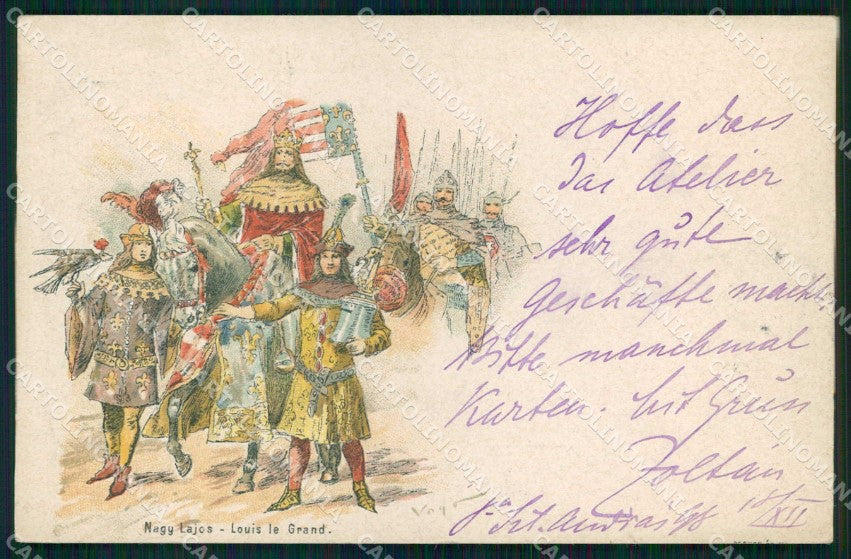 Hoffe dass
das Atelier
sehr gute
Geschäfte macht.
Bitte manchmal
Karten. Mit Gruss
Zoltán
Szt. András 98 XII
Nagy Lajos - Louis le Grand.
CARTOLINOMANIA